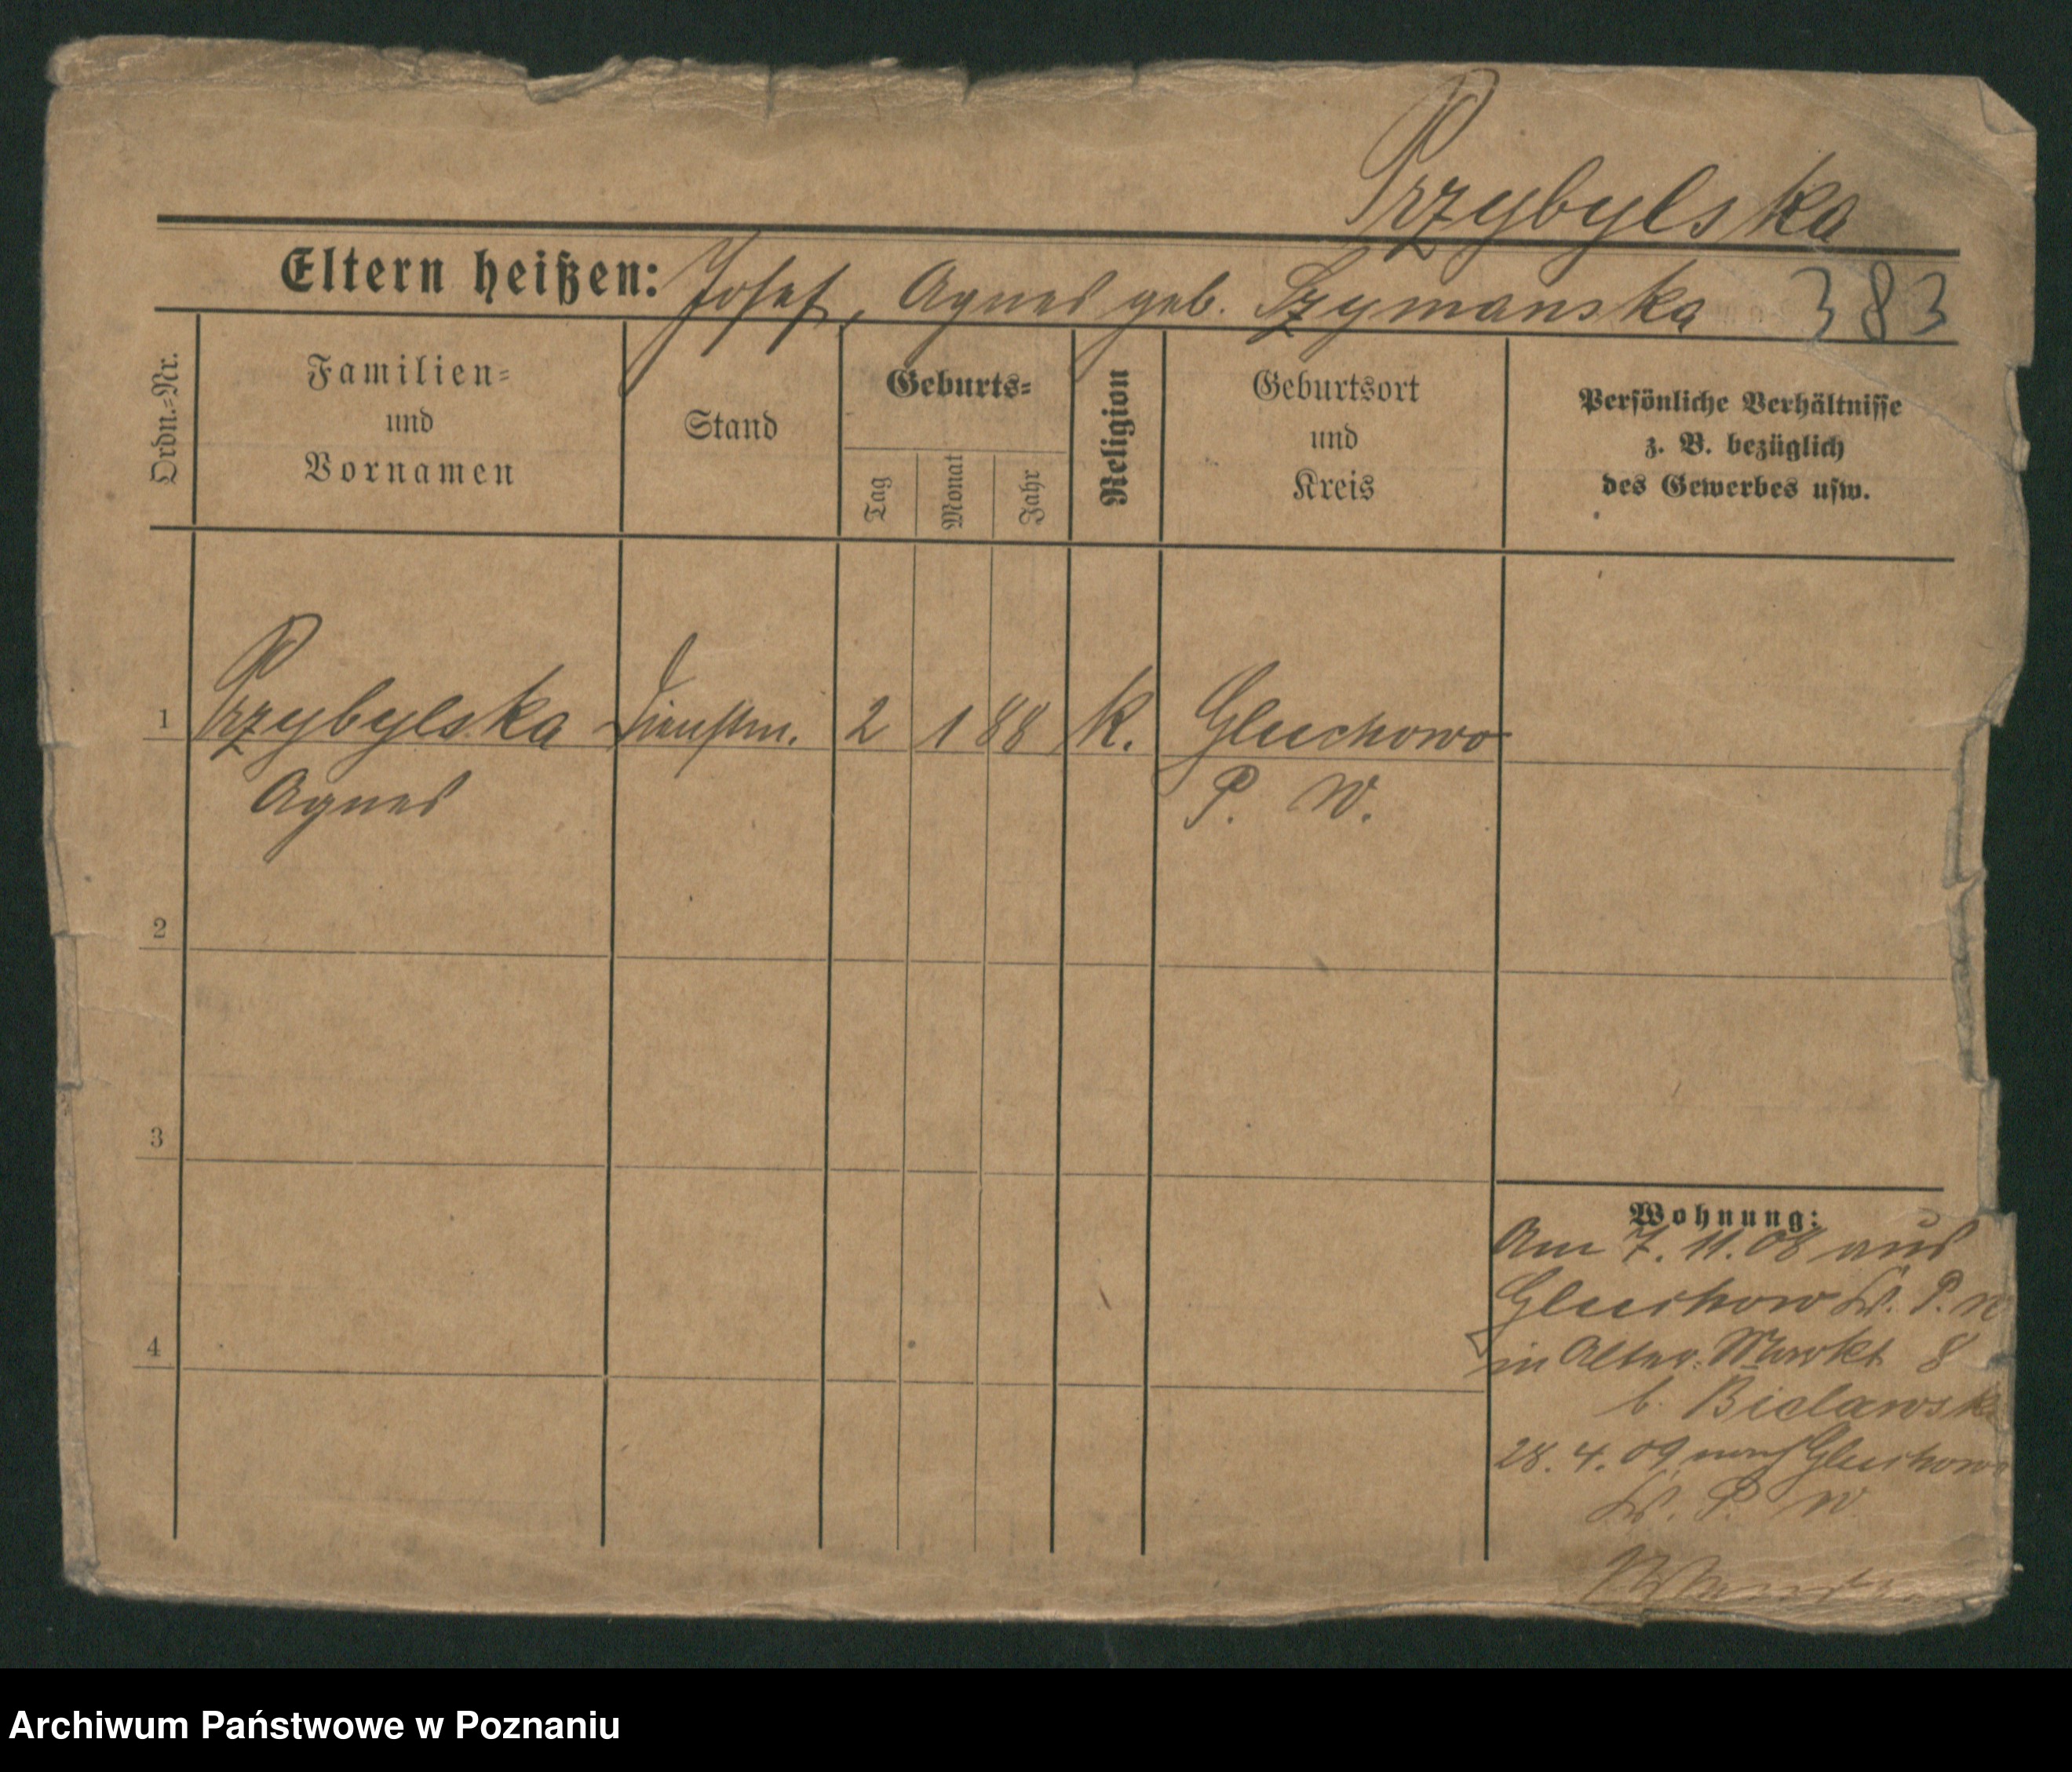 Przybylska
Eltern heißen: Josef, Agnes geb. Szymanska 383
Ordn.=Nr.
Familien=
und
Vornamen
Stand
Geburts=
Tag
Monat
Jahr
Religion
Geburtsort
und
Kreis
Persönliche Verhältnisse
z. B. bezüglich
des Gewerbes usw.
1 Przybylska Dienstm. 2 1 88 K. Gluchowo
Agnes P. W.
2
3
4
Wohnung:
Am 7. 11. 08 aus
Gluchowo Kr. P. W
in Alter Markt 8
b. Bielawski
28. 4. 09 nach Gluchowo
Kr. P. W.
Archiwum Państwowe w Poznaniu